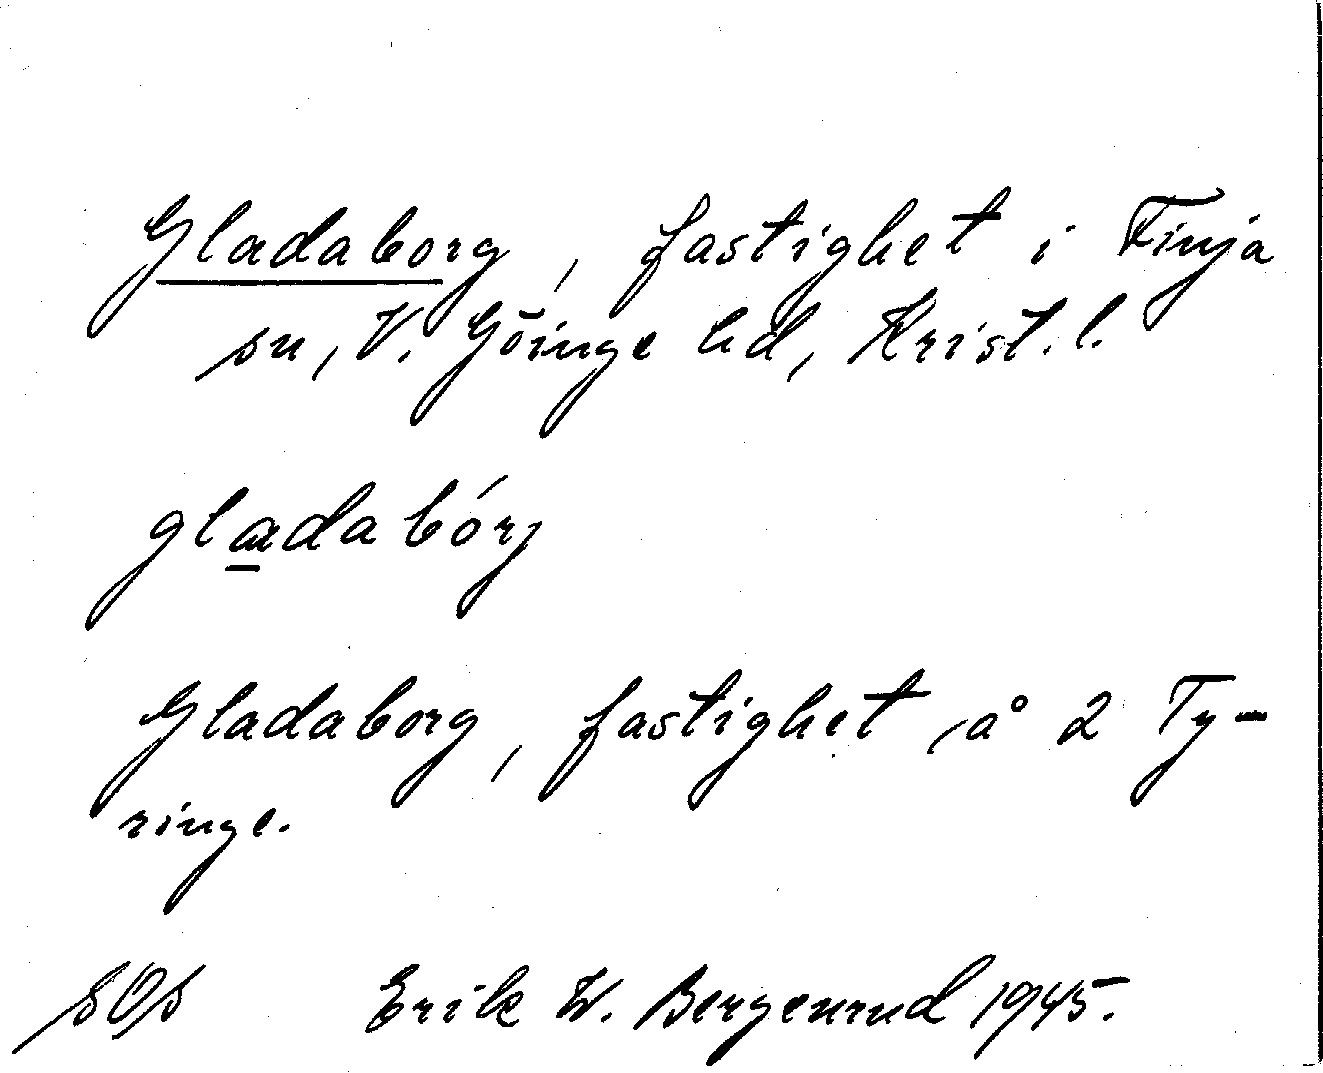 Gladaborg, fastighet i Finja
sn, V. Göinge hd, Krist. l.
gladabórj
Gladaborg, fastighet å 2 Ty-
ringe.
SOS Erik W. Bergenrud 1945.